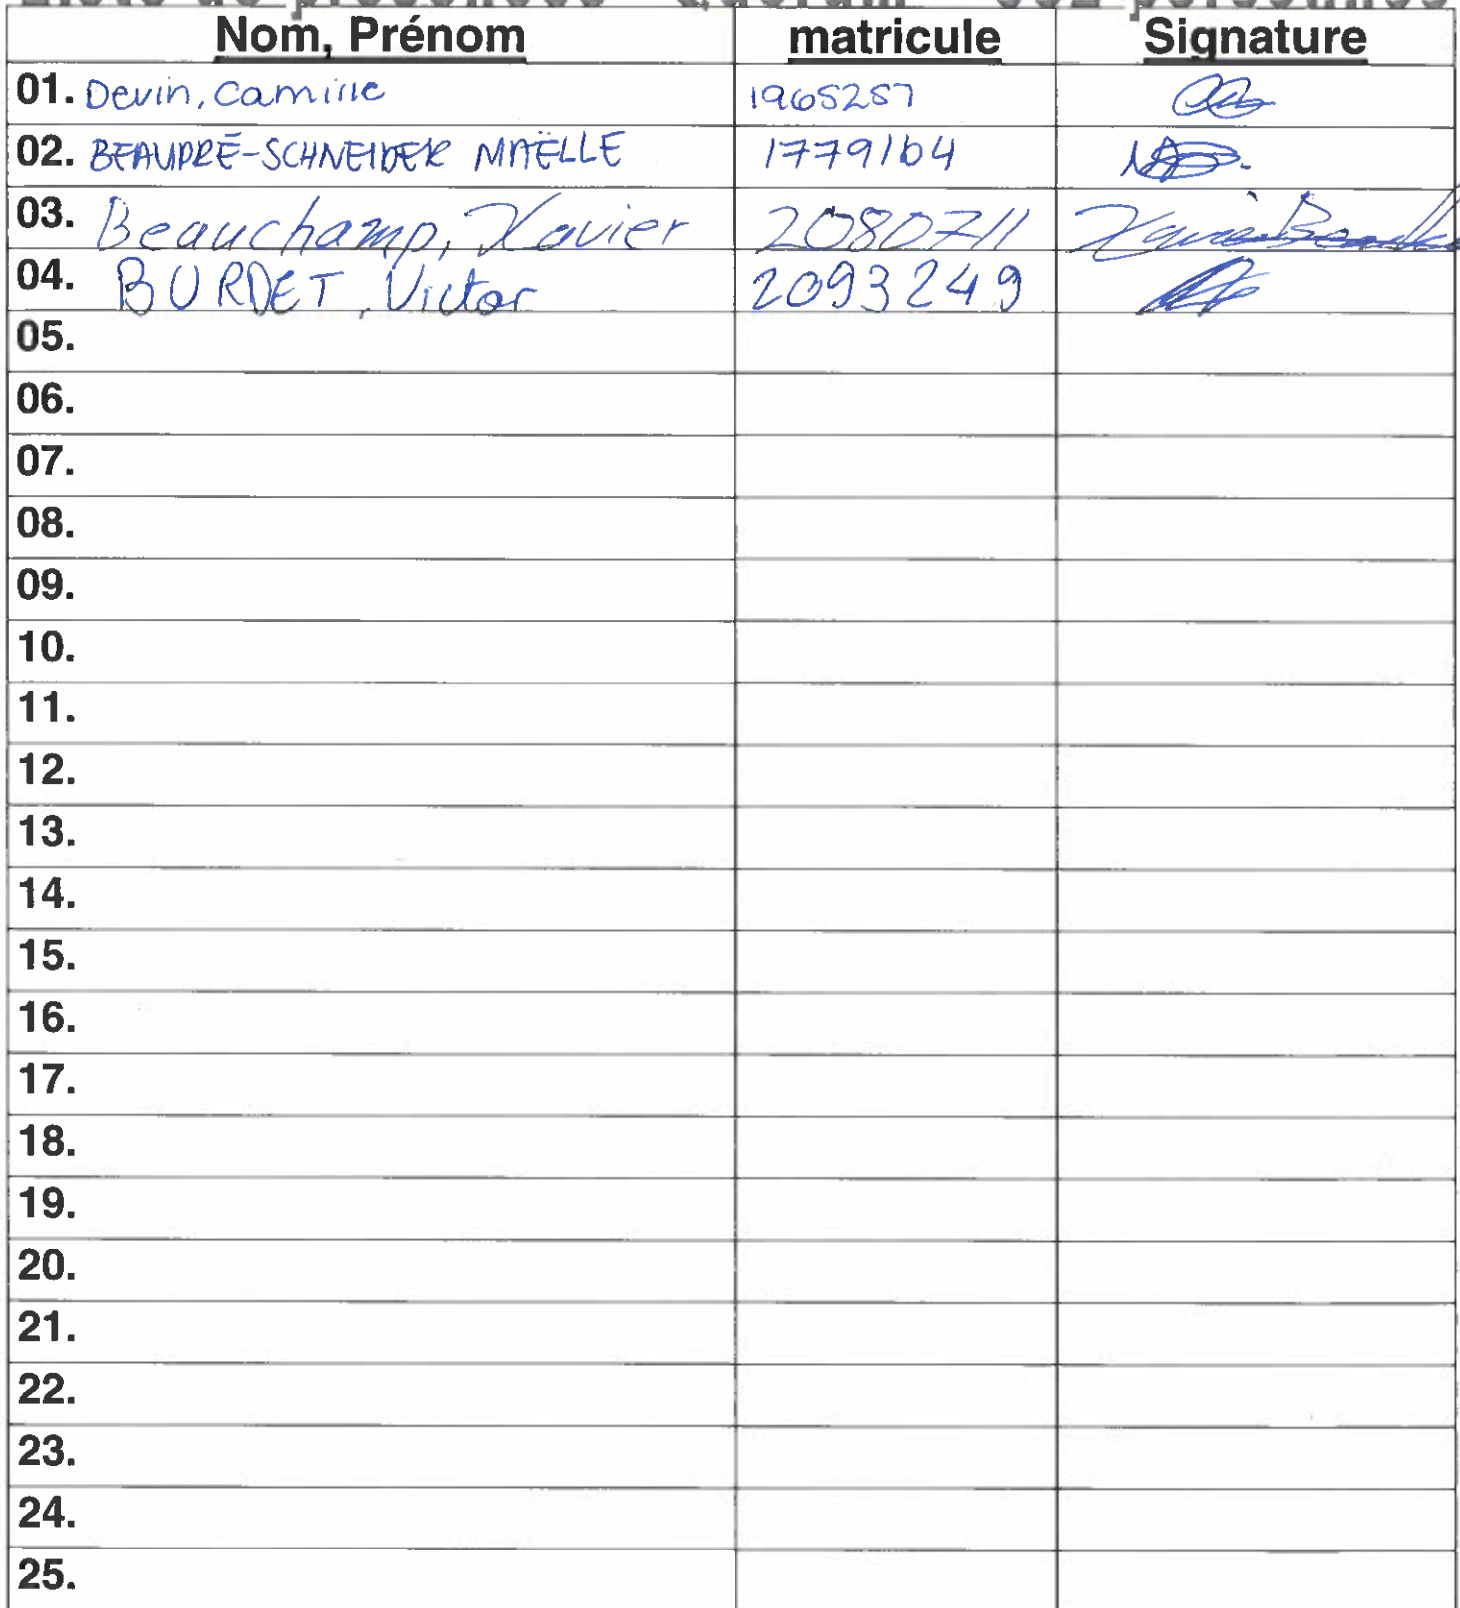 Nom, Prénom matricule Signature
01. Devin, Camille 1965257
02. BEAUPRÉ-SCHNEIDER MAËLLE 1779164
03. Beauchamp, Xavier 2080711
04. BURDET, Victor 2093249
05.
06.
07.
08.
09.
10.
11.
12.
13.
14.
15.
16.
17.
18.
19.
20.
21.
22.
23.
24.
25.